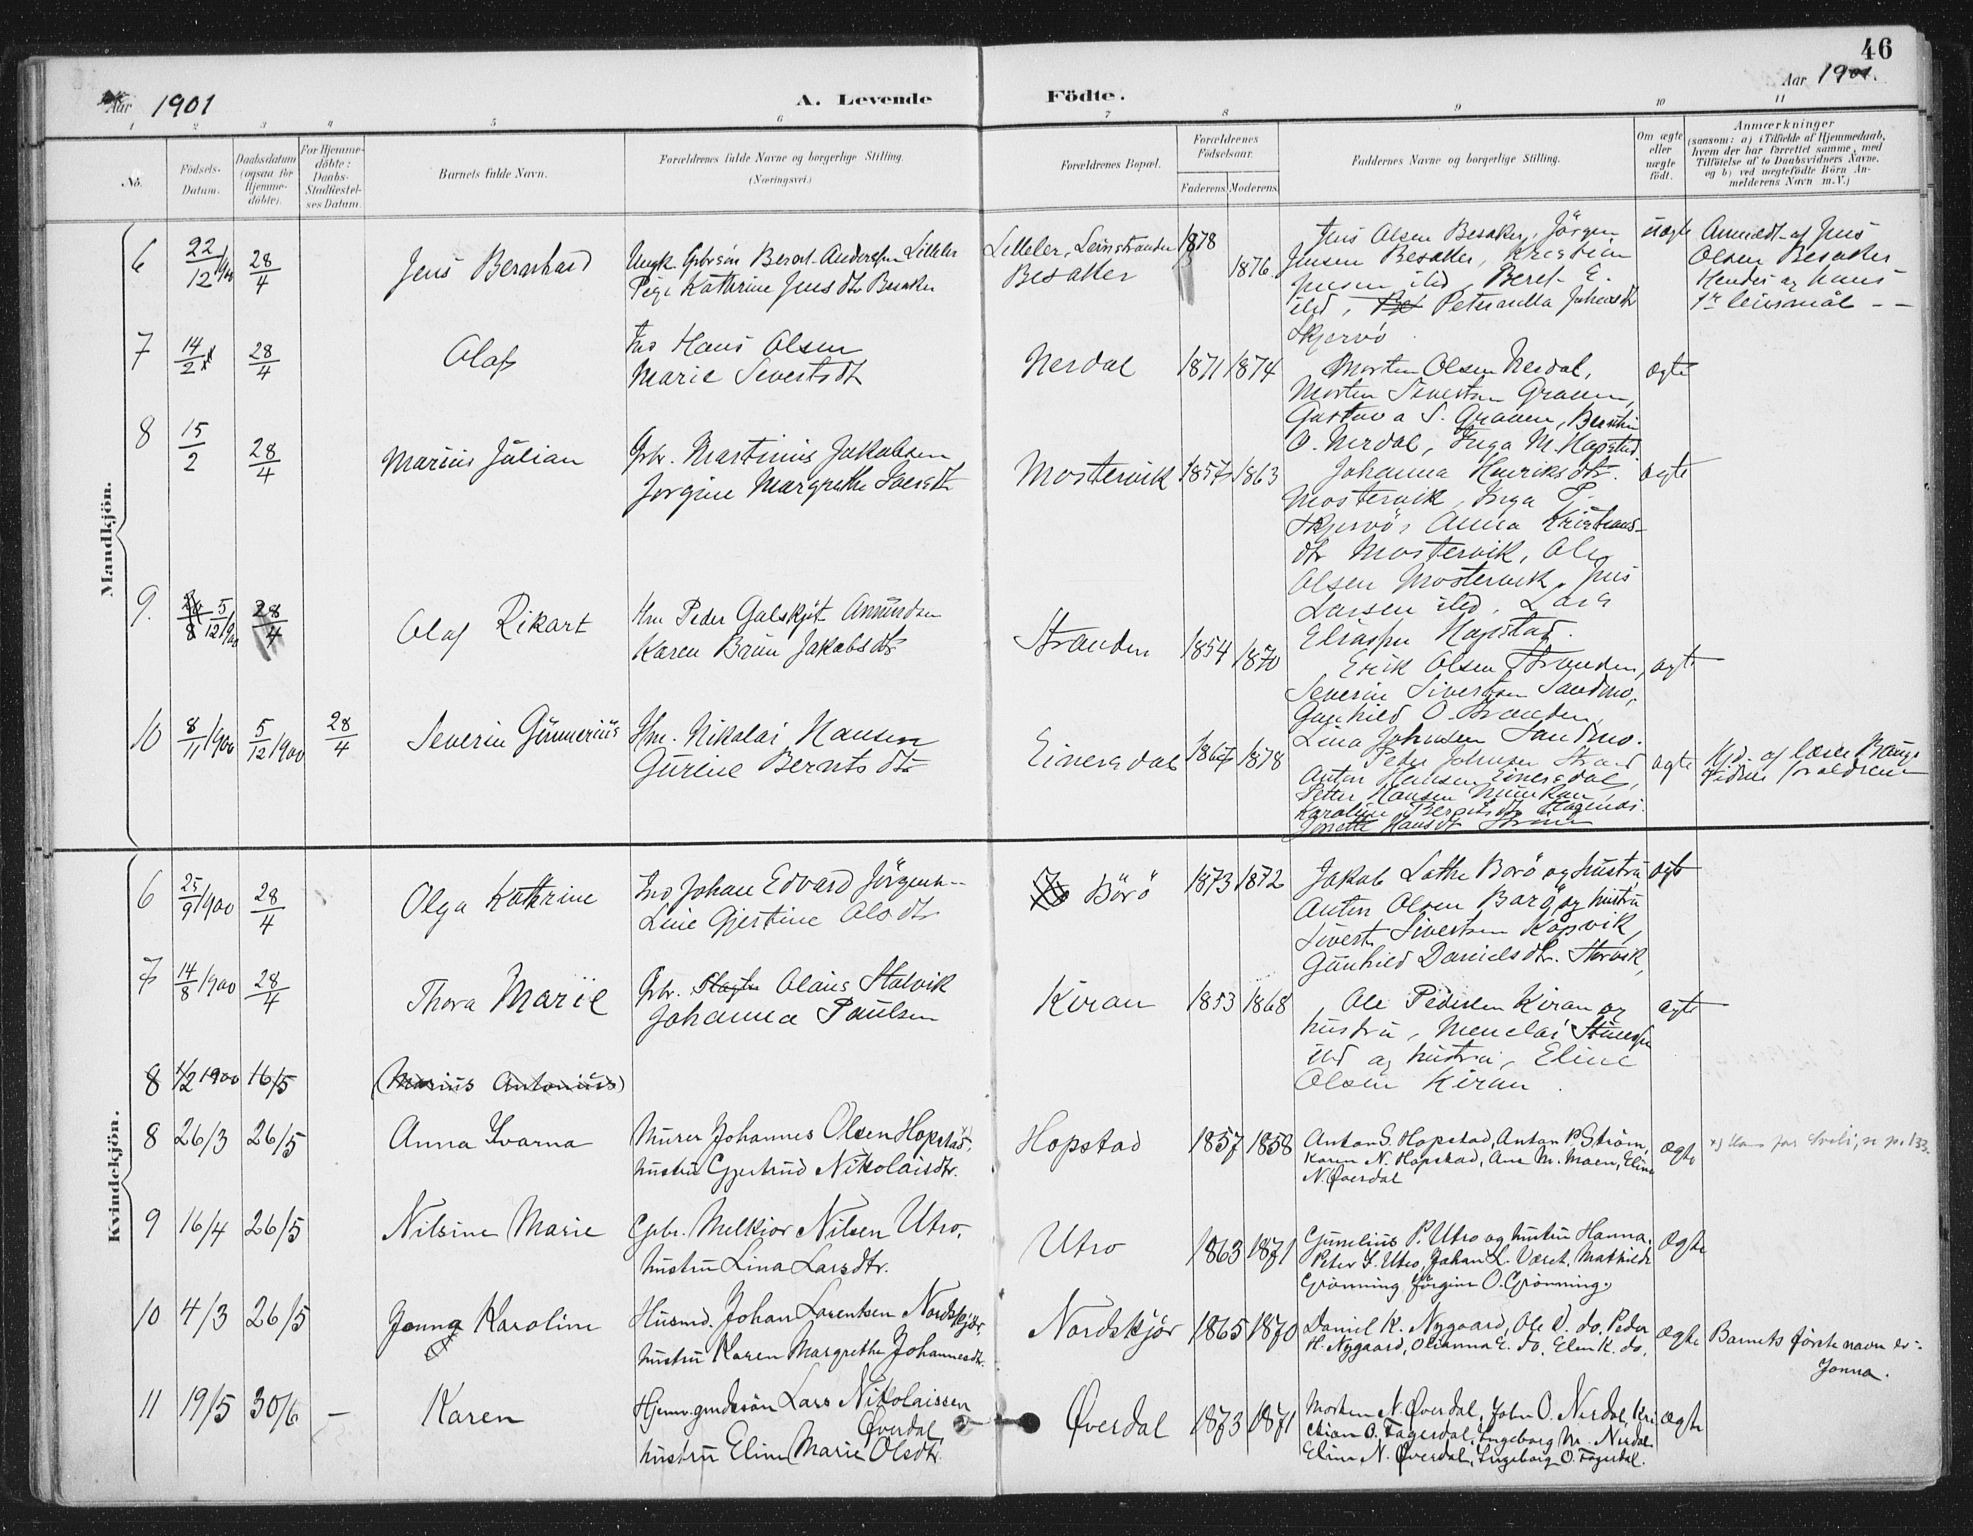 46
Aar 1901
A. Levende
Födte.
Aar 1901.
1 2 3 4 5 6 7 8 9 10 11
No.
Födsels-
Datum.
Daabsdatum
(ogsaa for
Hjemme-
döbte).
For Hjemme-
döbte:
Daabs-
Stadfæstel-
ses Datum.
Barnets fulde Navn.
Forældrenes fulde Navne og borgerlige Stilling.
(Næringsvei.)
Forældrenes Bopæl.
Forældrenes
Födselsaar.
Faderens. Moderens.
Faddernes Navne og borgerlige Stilling.
Om ægte
eller
uægte
födt.
Anmærkninger
(saasom: a) i Tilfælde af Hjemmedaab,
hvem der har forrettet samme, med
Tilföielse af to Daabsvidners Navne.
og b) ved uægtefödte Börn An-
melderens Navn m. V.)
Mandkjön.
6 22/12 1900 28/4 Jens Bernhard
Ungk. Gbrsön Bernt Andersen Lilleler
Pige Kathrine Jensdtr Besaker
Lilleler, Leinstranden
Besaker
1878 1876
Jens Olsen Besaker, Jörgen
Jensen Besaker, Kristian
Jensen ibd Beret E.
ibd, Peternella Johansdtr
Skjervö
uægte
Anmeldt af Jens
Olsen Besaker
Hendes og hans
1ste leiermål
7 14/2 28/4 Olaf
Ind Hans Olsen
Marie Sivertsdtr
Nerdal 1871 1874
Morten Olsen Nerdal,
Morten Sivertsen Graven,
Gustava S. Graven, Berntin
O. Nerdal, Inga M. Hopstad
ægte
8 15/2 28/4 Marius Julian
Gbr. Martinus Jakobsen
Jorgine Margrethe
Mostervik 1857 1863
Johanna Henriksdtr.
Mostervik, Inga P.
Skjervö, Anna Kristians-
dtr Mostervik, Ole
Olsen Mostervik, Jens
Larsen ibd, Lars
Eliassen Hopstad.
ægte
9. 5/12 1900 28/4 Olaf Rikart
Hm Peder Galskjöt Amundsen
Karen Bann Jakobsdtr
Stranden 1854 1870
Erik Olsen Stranden,
Severin Sivertsen Sandmo,
Gunhild O. Stranden
Lina Johnsen Sandmo.
ægte
10 8/11 1900 5/12 1900 28/4 Severin Gunnerius
Hm. Nikolai Hansen
Gurine Berntsdtr
Einersdal 1867 1878
Peder Johnsen Strand
Anton Hansen Einersdal,
Petter Hansen
Karoline Berntsdtr
Hansdtr
ægte
Hjd. af lærer Bange
foreldrene
Kvindekjön.
6 25/9 1900 28/4 Olga Kathrine
Ind Johan Edvard Jörgens.
Line Gjertine Olsdtr
Börö 1873 1872
Jakob Lothe Borö og hustru
Anton Olsen Barö og hustru
Sivert Sivertsen Kopvik,
Gunhild Danielsdtr. Storvik,
ægt
7 14/8 1900 28/4 Thora Marie
Gbr. Olaus Stalvik
Johanna Paulsen
Kiran 1853 1868
Ole Pedersen Kiran og
hustru, Menelai
ibd og hustru, Eline
Olsen Kiran.
ægte
8 1/2 1900 16/5 (Marius Antonius)
8 26/3 26/5 Anna Ivarna
Murer Johannes Olsen Hopstad,
hustru Gjertrud Nikolaisdtr.
Hopstad 1857 1858
Anton G. Hopstad, Anton P. Ström,
Karen N. Hopstad, Ane M. Moen, Eline
N. Øverdal
ægte
9 16/4 26/5 Nilsine Marie
Gbr. Melkior Nilsen Utro,
hustru Lina Larsdtr.
Utro 1863 1871
Gunelius P. Utro og hustru Hanna,
Peter S. Utro, Johan L. Været, Mathilde
Grönning Jörgine O. Grönning.
Ægte
10 4/3 26/5 Jonna Karoline
Husmd. Johan Larentsen Nordskjör,
hustru Karen Margrethe Johannesdtr.
Nordskjör 1865 1870
Daniel K. Nygaard, Ole D. do, Peder
H. Nygaard, Olianna E. do, Elen K. do.
Ægte
Barnets förste navn er:
Jonna.
11 19/5 30/6 – Karen
Hjemv. gmdesön Lars Nikolaissen
Øverdal
hustru Eline Marie Olsdtr.
Øverdal 1873 1871
Morten N. Øverdal, John O. Nerdal, Kri
stian O. Fagerdal, Ingeborg M. Nerdal
Eline N. Øverdal, Ingeborg O. Fagerdal.
Ægte